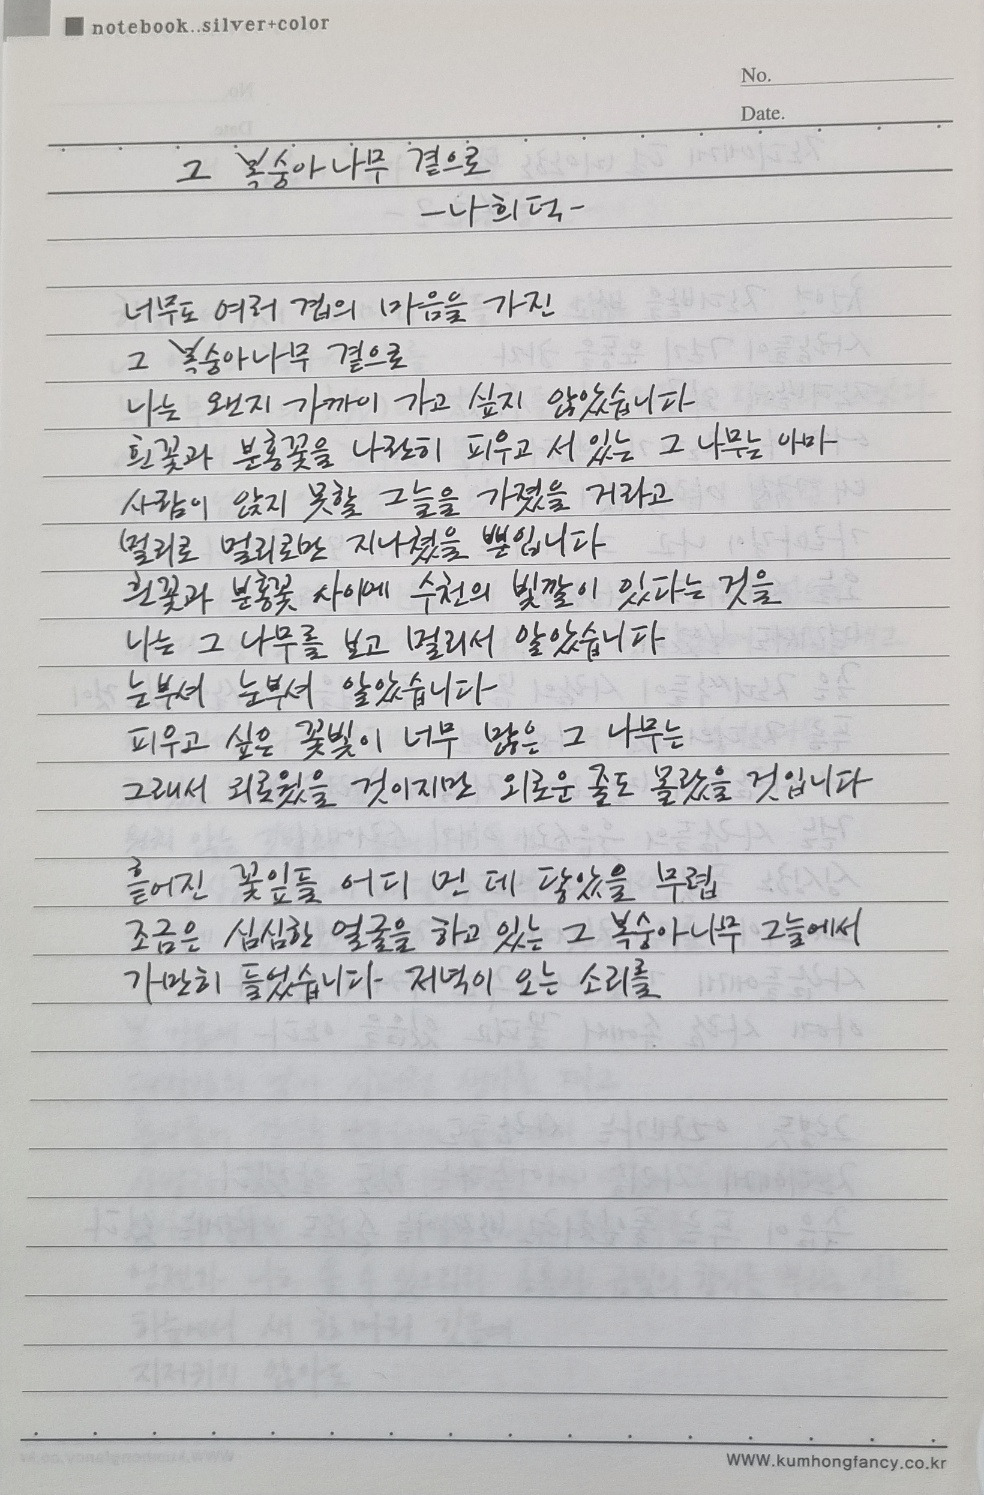 notebook..silver+color
No.
Date.
그 복숭아나무 곁으로
-나희덕-
너무도 여러 겹의 마음을 가진
그 복숭아나무 곁으로
나는 왠지 가까이 가고 싶지 않았습니다
흰꽃과 분홍꽃을 나란히 피우고 서 있는 그 나무는 아마
사람이 앉지 못할 그늘을 가졌을 거라고
멀리로 멀리로만 지나쳤을 뿐입니다
흰꽃과 분홍꽃 사이에 수천의 빛깔이 있다는 것을
나는 그 나무를 보고 멀리서 알았습니다
눈부셔 눈부셔 알았습니다
피우고 싶은 꽃빛이 너무 많은 그 나무는
그래서 외로웠을 것이지만 외로운 줄도 몰랐을 것입니다
흩어진 꽃잎들 어디 먼 데 닿았을 무렵
조금은 심심한 얼굴을 하고 있는 그 복숭아나무 그늘에서
가만히 들었습니다 저녁이 오는 소리를
www.kumhongfancy.co.kr